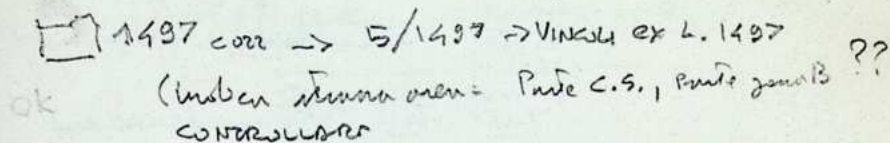 1497 corr -> 5/1497 -> VINCOLI ex L. 1497
( area = Parte C.S., Parte zona B ??
ok
CONTROLLARE